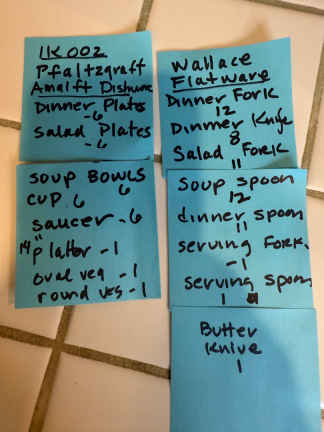 1K002
Pfaltzgraft
Amalfi Dishware
Dinner Plats
-6
Salad Plates
-6
SOUP BOWLS
6
CUP. 6
saucer - 6
14" platter - 1
oval veg - 1
round veg - 1
Wallace
Flatware
Dinner Fork
12
Dinner Knife
8
Salad Fork
11
Soup spoon
12
dinner spoon
11
serving Fork
-1
serving spoon
1
Butter
Knive
1